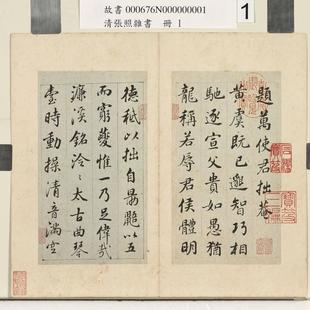 故書 000676N000000001
清張照雜書 冊 1
1
題萬使君拙菴
黃虞既已邈智巧相
馳逐宣父貴如愚猶
龍稱若辱君侯體明
德祗以拙自勗鼯以五
而窮夔惟一乃足偉哉
濂溪銘泠泠太古曲琴
臺時動操清音滿空